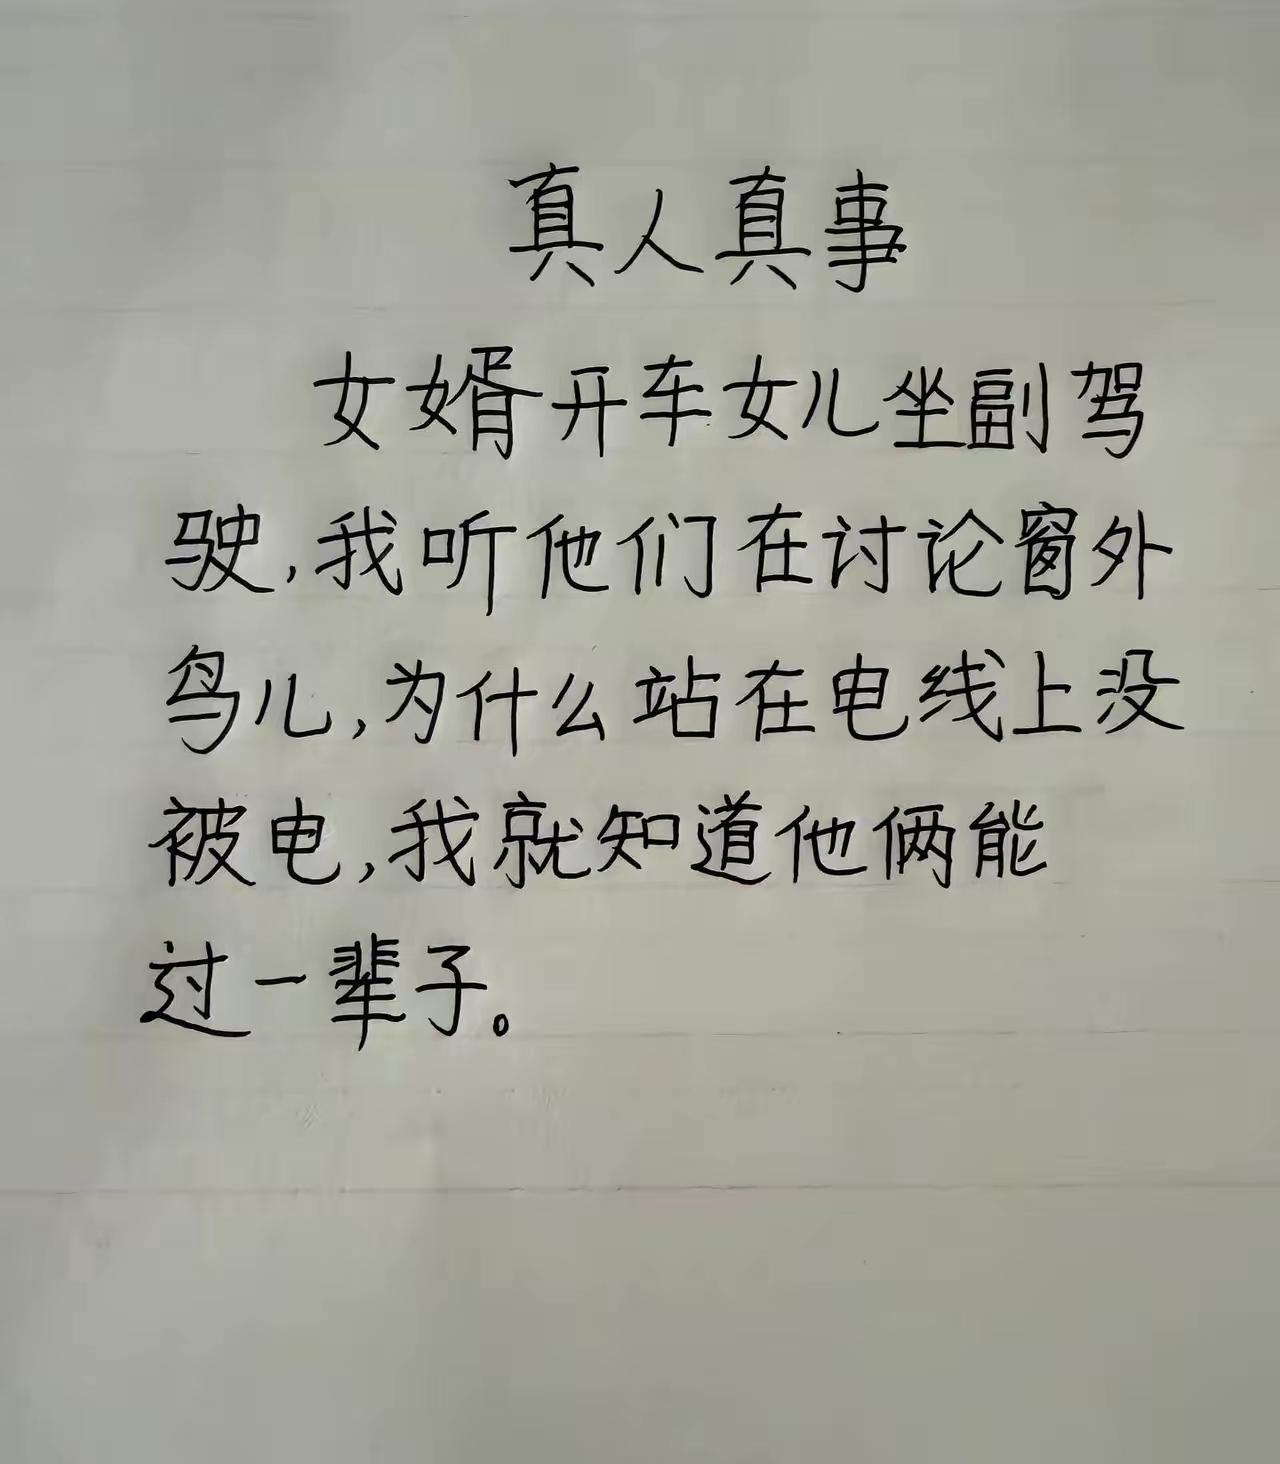 真人真事
女婿开车女儿坐副驾
驶,我听他们在讨论窗外
鸟儿,为什么站在电线上没
被电,我就知道他俩能
过一辈子。